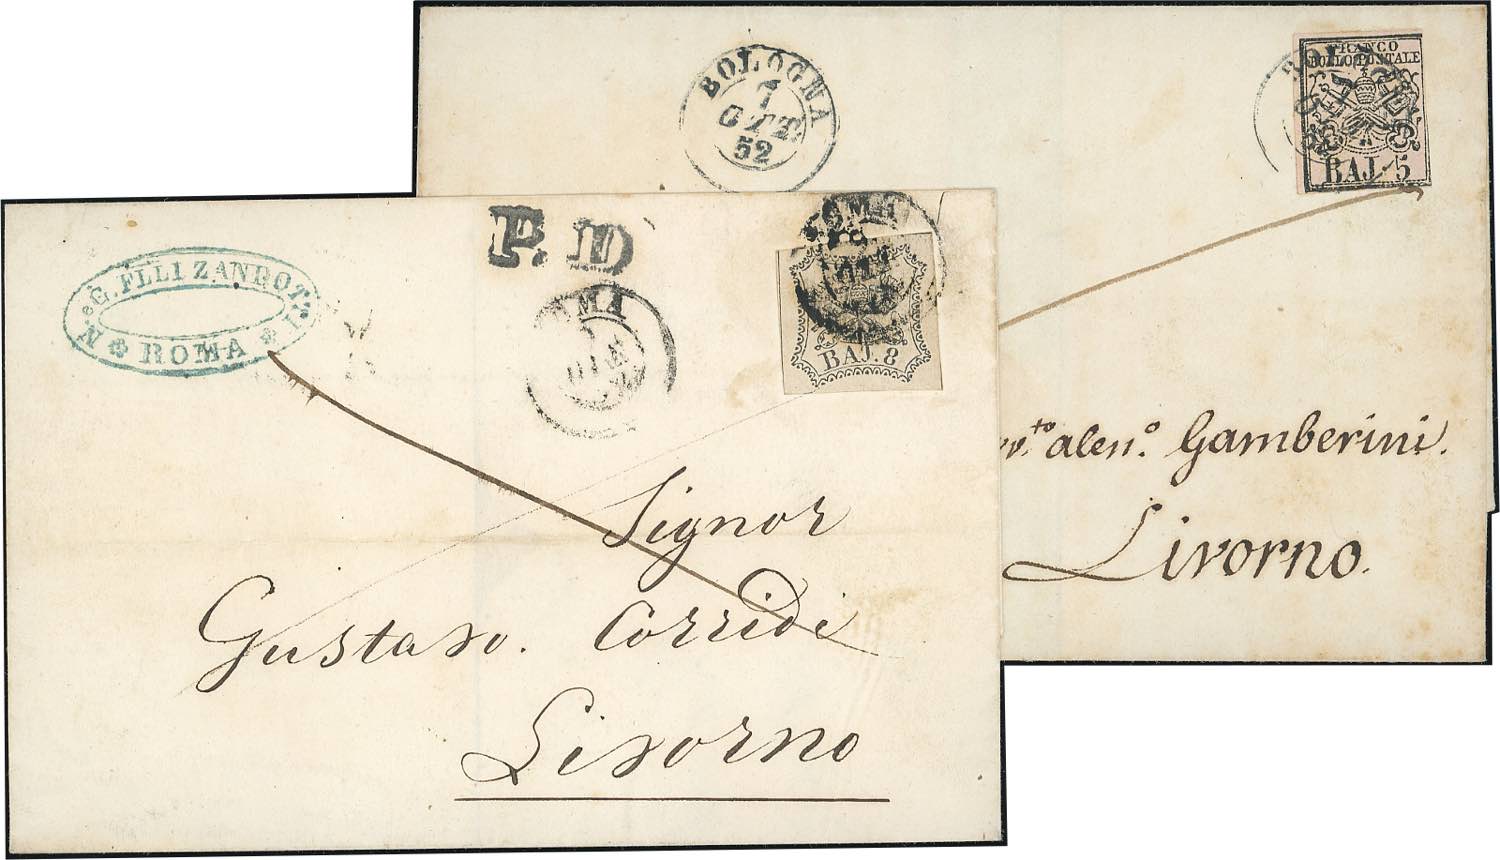 BOLOGNA
7
OTT
52
FRANCO
BOLLO POSTALE
BAJ. 5
Gamberini.
Livorno.
N. e G. FLLI ZANDOTTI
ROMA
P. D
ROMA
ROMA
8
OTT
BAJ. 8
Signor
Gustavo. Corridi
Livorno